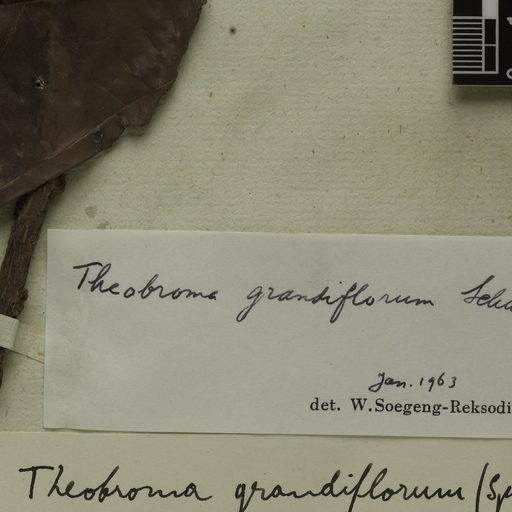 Theobroma grandiflorum Schu
Jan. 1963
det. W.Soegeng-Reksodi
Theobroma grandiflorum (Sp